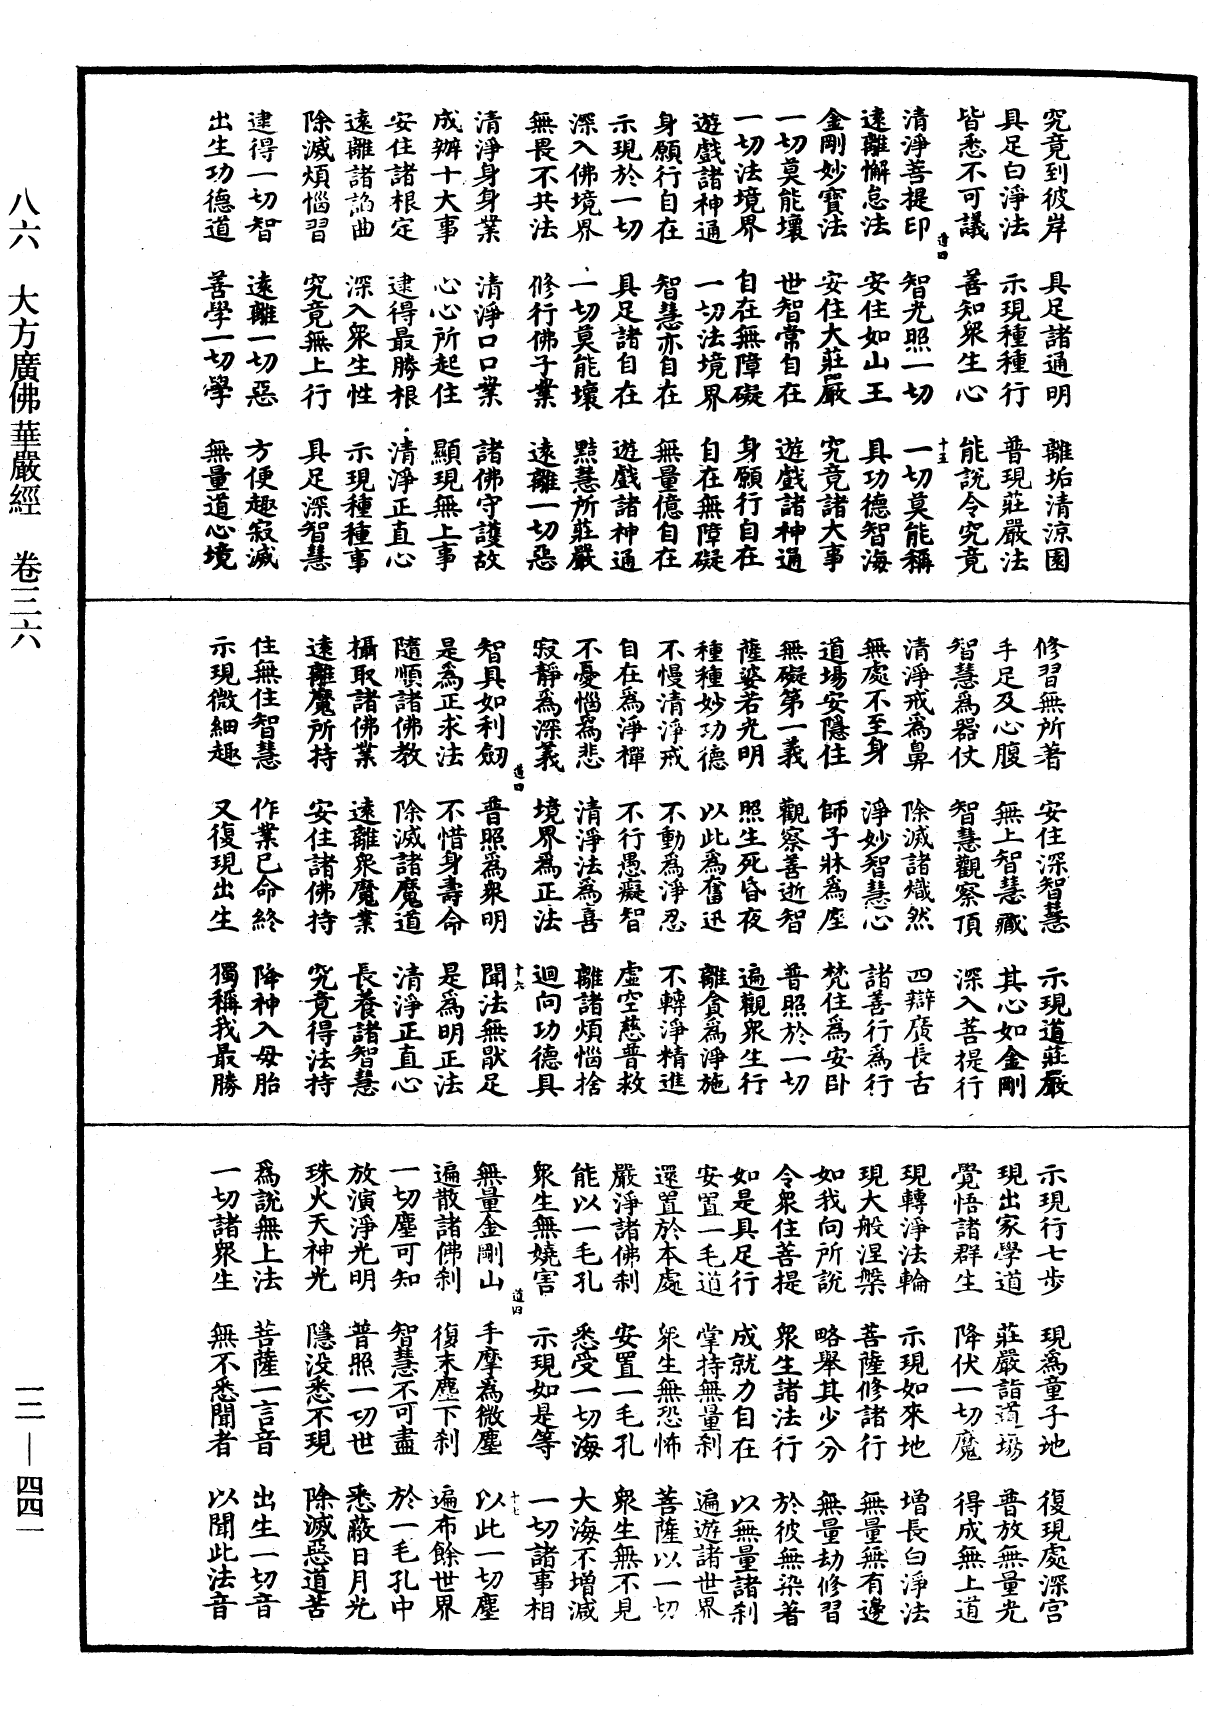 究竟到彼岸　具足諸通明　離垢清涼園
具足白淨法　示現種種行　普現莊嚴法
皆悉不可議　善知衆生心　能說令究竟
道四
十五
清淨菩提印　智光照一切　一切莫能稱
遠離懈怠法　安住如山王　具功德智海
金剛妙寶法　安住大莊嚴　究竟諸大事
一切莫能壞　世智常自在　遊戲諸神通
一切法境界　自在無障礙　身願行自在
遊戲諸神通　一切法境界　自在無障礙
身願行自在　智慧亦自在　無量億自在
示現於一切　具足諸自在　遊戲諸神通
深入佛境界　一切莫能壞　黠慧所莊嚴
無畏不共法　修行佛子業　遠離一切惡
清淨身身業　清淨口口業　諸佛守護故
成辦十大事　心心所起住　顯現無上事
安住諸根定　逮得最勝根　清淨正直心
遠離諸諂曲　深入衆生性　示現種種事
除滅煩惱習　究竟無上行　具足深智慧
逮得一切智　遠離一切惡　方便趣寂滅
出生功德道　善學一切學　無量道心境
修習無所著　安住深智慧　示現道莊嚴
手足及心腹　無上智慧藏　其心如金剛
智慧爲器仗　智慧觀察頂　深入菩提行
清淨戒爲鼻　除滅諸熾然　四辯廣長舌
無處不至身　淨妙智慧心　諸善行爲行
道場安隱住　師子牀爲座　梵住爲安卧
無礙第一義　觀察善逝智　普照於一切
薩婆若光明　照生死昏夜　遍觀衆生行
種種妙功德　以此爲奮迅　離貪爲淨施
不慢清淨戒　不動爲淨忍　不轉淨精進
自在爲淨禪　不行愚癡智　虛空慈普救
不憂惱爲悲　清淨法爲喜　離諸煩惱捨
寂靜爲深義　境界爲正法　迴向功德具
道四
十六
智具如利劒　普照爲衆明　聞法無猒足
是爲正求法　不惜身壽命　是爲明正法
隨順諸佛教　除滅諸魔道　清淨正直心
攝取諸佛業　遠離衆魔業　長養諸智慧
遠離魔所持　安住諸佛持　究竟得法持
住無住智慧　作業已命終　降神入母胎
示現微細趣　又復現出生　獨稱我最勝
示現行七步　現爲童子地　復現處深宮
現出家學道　莊嚴詣道場　普放無量光
覺悟諸群生　降伏一切魔　得成無上道
現轉淨法輪　示現如來地　增長白淨法
現大般涅槃　菩薩修諸行　無量無有邊
如我向所說　略舉其少分　無量劫修習
令衆住菩提　衆生諸法行　於彼無染著
如是具足行　成就力自在　以無量諸刹
安置一毛道　掌持無量刹　遍遊諸世界
還置於本處　衆生無恐怖　菩薩以一切
嚴淨諸佛刹　安置一毛孔　衆生無不見
能以一毛孔　悉受一切海　大海不增減
衆生無嬈害　示現如是等　一切諸事相
道四
十七
無量金剛山　手摩爲微塵　以此一切塵
遍散諸佛刹　復末塵下刹　遍布餘世界
一切塵可知　智慧不可盡　於一毛孔中
放演淨光明　普照一切世　悉蔽日月光
珠火天神光　隱没悉不現　除滅惡道苦
爲說無上法　菩薩一言音　出生一切音
一切諸衆生　無不悉聞者　以聞此法音
八六　大方廣佛華嚴經　卷三六
一二—四四一